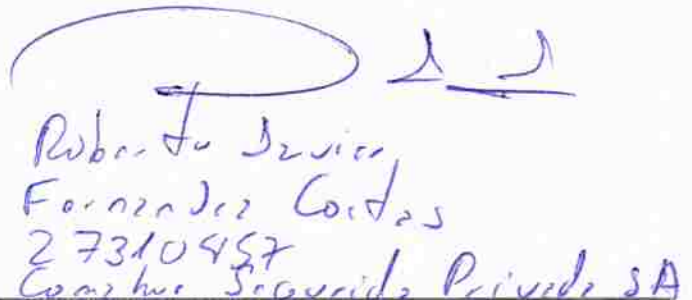 Roberto Javier
Fernandez Cortes
27310457
Seguridad Privada SA